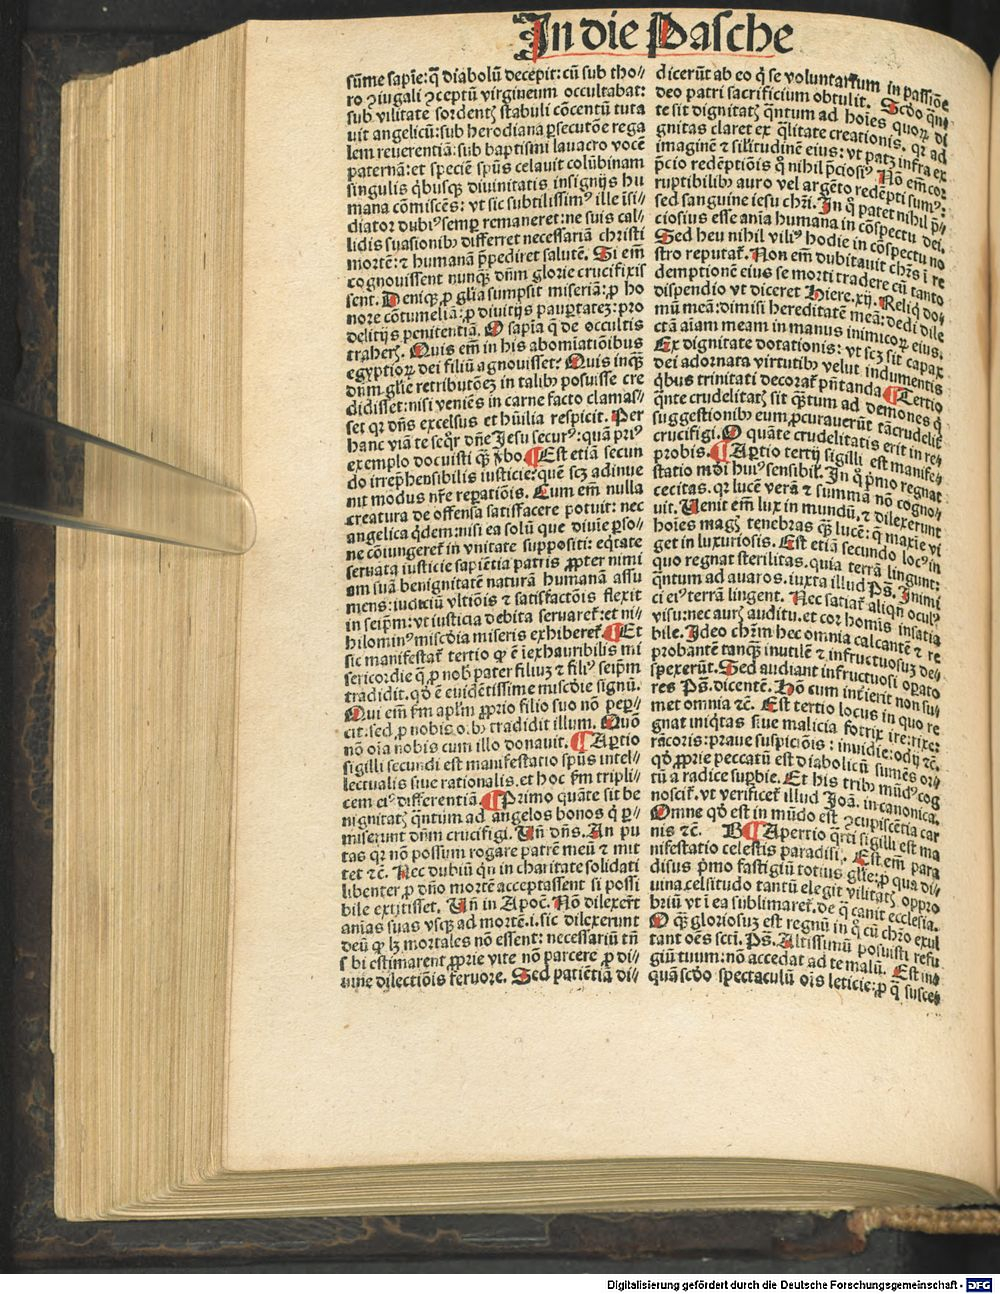 In die Pasche
sũme sapiẽ: q̃ diabolũ decepit: cũ sub tho⸗
ro ꝯiugali ꝯceptũ virgineum occultabat:
sub vilitate sordentꝭ stabuli cõcentũ tuta
uit angelicũ: sub herodiana ꝑsecutõe rega
lem reuerentiã: sub baptismi lauacro vocẽ
paternã: et speciẽ spũs celauit colũbinam
singulis q̃busqꝫ diuinitatis insignijs hu
mana cõmiscẽs: vt sic subtilissimꝰ ille ĩsi⸗
diator dubiꝰ semꝑ remaneret: ne suis cal⸗
lidis suasionibꝰ differret necessariã christi
mortẽ: ⁊ humanã p̃pediret salutẽ. Si em̃
cognouissent nunqꝫ dñm glorie crucifixis
sent. Deniqꝫ ꝓ gl̃ia sumpsit miseriã: ꝓ ho
nore cõtumeliã: ꝓ diuitijs pauꝑtatẽ: pro
delitijs penitentiã. O sapĩa q̃ de occultis
traherꝭ. Quis em̃ in his abomiatiõibus
egyptioꝝ dei filiũ agnouisset? Quis inqꝫ
dñm gl̃ie retributõeꝫ in talibꝰ posuisse cre
didisset: nisi veniẽs in carne facto clamas⸗
set qꝛ dñs excelsus et hũilia respicit. Per
hanc viã te seq̃r dñe Jesu securꝰ: quã priꝰ
exemplo docuisti qꝫ ṽbo. ¶ Est etiã secun
do irrep̃hensibilis iusticie: quẽ scꝫ adinue
nit modus nr̃e reꝑatiõis. Cum em̃ nulla
creatura de offensa satisfacere potuit: nec
angelica q̃dem: nisi ea solũ que diuĩe ꝑso⸗
ne cõiungeret̃ in vnitate suppositi: eq̃tate
seruata iusticie sapiẽtia patris ꝓpter nimi
am suã benignitatẽ naturã humanã assu
mens: iudiciũ vltiõis ⁊ satisfactõis flexit
in seip̃m: vt iusticia debita seruaret̃: et ni⸗
hilominꝰ misc̃dia miseris exhiberet̃. ¶ Et
sic manifestat̃ tertio ꝙ ẽ ĩexhauribilis mi
sericordie q̃ ꝓ nob̃ pater filiuꝫ ⁊ filiꝰ seip̃m
tradidit. qd̃ ẽ euidẽtissime misc̃die signũ.
Qui em̃ fm̃ apl̃m ꝓprio filio suo nõ peꝑ⸗
cit. sed ꝓ nobis oĩbꝰ tradidit illum. Quõ
nõ oĩa nobis cum illo donauit. ¶ Aꝑtio
sigilli secundi est manifestatio spũs intel⸗
lectualis siue rationalis. et hoc fm̃ tripli⸗
cem eiꝰ differentiã. ¶ Primo quãte sit be
nignitatꝭ q̃ntum ad angelos bonos q̃ ꝑ⸗
miserunt dñm crucifigi. Vñ dñs. An pu
tas qꝛ nõ possum rogare patrẽ meũ ⁊ mit
tet ⁊c̃. Nec dubiũ q̃n in charitate solidati
libenter ꝓ dño mortẽ acceptassent si possi
bile extitisset. Vñ in Apoc̃. Nõ dilexer̃t
anĩas suas vsqꝫ ad mortẽ. i. sic dilexerunt
deũ ꝙ lꝫ mortales nõ essent: necessariũ tñ
s bi estimarent ꝓprie vite nõ parcere ꝓ di⸗
uine dilectiõis feruore. Sed patiẽtiã di⸗
dicerũt ab eo q̃ se voluntarium in passiõe
deo patri sacrificium obtulit. Scd̃o q̃n⸗
te sit dignitatꝭ q̃ntum ad hoĩes quoꝝ di
gnitas claret ex q̃litate creationis. qꝛ ad
imaginẽ ⁊ sil̃itudinẽ eius: vt patꝫ infra ex
p̃cio redẽptiõis q̃ nihil p̃ciosiꝰ. Nõ em̃ cor
ruptibilibꝰ auro vel argẽto redẽpti sumꝰ:
sed sanguine iesu chr̃i. In q̃ patet nihil p̃⸗
ciosius esse anĩa humana in cõspectu dei.
Sed heu nihil viliꝰ hodie in cõspectu no
stro reputat̃. Non em̃ dubitauit chr̃s ĩ re
demptionẽ eius se morti tradere cũ tanto
dispendio vt diceret Hiere. xij. Reliq̃ do⸗
mũ meã: dimisi hereditatẽ meã: dedi dile
ctã aĩam meam in manus inimicoꝝ eius.
Ex dignitate dotationis: vt scꝫ sit capax
dei adornata virtutibꝰ velut indumentis
q̃bus trinitati decorat̃ pñtanda. ¶ Tertio
q̃nte crudelitatꝭ sit qꝫtum ad demones q̃
suggestionibꝰ eum ꝓcurauerũt tã crudelit̃
crucifigi. O quãte crudelitatis erit in re⸗
probis. ¶ Aꝑtio tertij sigilli est manife⸗
statio mũdi huiꝰ sensibil̃. In q̃ p̃mo regnat
cecitas. qꝛ lucẽ verã ⁊ summã nõ cogno⸗
uit. Venit em̃ lux in mundũ, ⁊ dilexerunt
hoĩes magꝭ tenebras qꝫ lucẽ: q̃ maxĩe vi
get in luxuriosis. Est etiã secundo locꝰ in
quo regnat sterilitas. quia terrã lingunt:
q̃ntum ad auaros. iuxta illud Ps̃. Inimi
ci eiꝰ terrã lingent. Nec satiat̃ aliqñ oculꝰ
visu: nec aurꝭ auditu. et cor homĩs insatia
bile. Ideo chr̃m hec omnia calcantẽ ⁊ re
probantẽ tanqꝫ inutilẽ ⁊ infructuosuꝫ de⸗
spexerũt. Sed audiant infructuosi oꝑato
res Ps̃. dicentẽ. Hõ cum inter̃ierit non su⸗
met omnia ⁊c̃. Est tertio locus in quo re
gnat iniq̃tas siue malicia fotrix ire: rixe:
rãcoris: praue suspiciõis: inuidie: odij ⁊c̃.
qd̃ ꝓprie peccatũ est diabolicũ sumẽs ori⸗
tũ a radice suꝑbie. Et his tribꝰ mũdꝰ cog
noscit̃. vt verificet̃ illud Joã. in canonica.
Omne qd̃ est in mũdo est ꝯcupiscẽtia car
nis ⁊c̃. B ¶ Apertio q̃rti sigilli est ma
nifestatio celestis paradisi. Est em̃ para
disus p̃mo fastigiũ totius gl̃ie: ꝓ qua di⸗
uina celsitudo tantũ elegit vilitatꝭ oppro
briũ vt ĩ ea sublimaret̃. de q̃ canit ecclesia.
O qꝫ gloriosuꝫ est regnũ in q̃ cũ chr̃o exul
tant oẽs scti. Ps̃. Altissimũ posuisti refu
giũ tuum: nõ accedat ad te malũ. Est ins
quã scd̃o spectaculũ oĩs leticie: ꝓ q̃ susce⸗
Digitalisierung gefördert durch die Deutsche Forschungsgemeinschaft - DFG